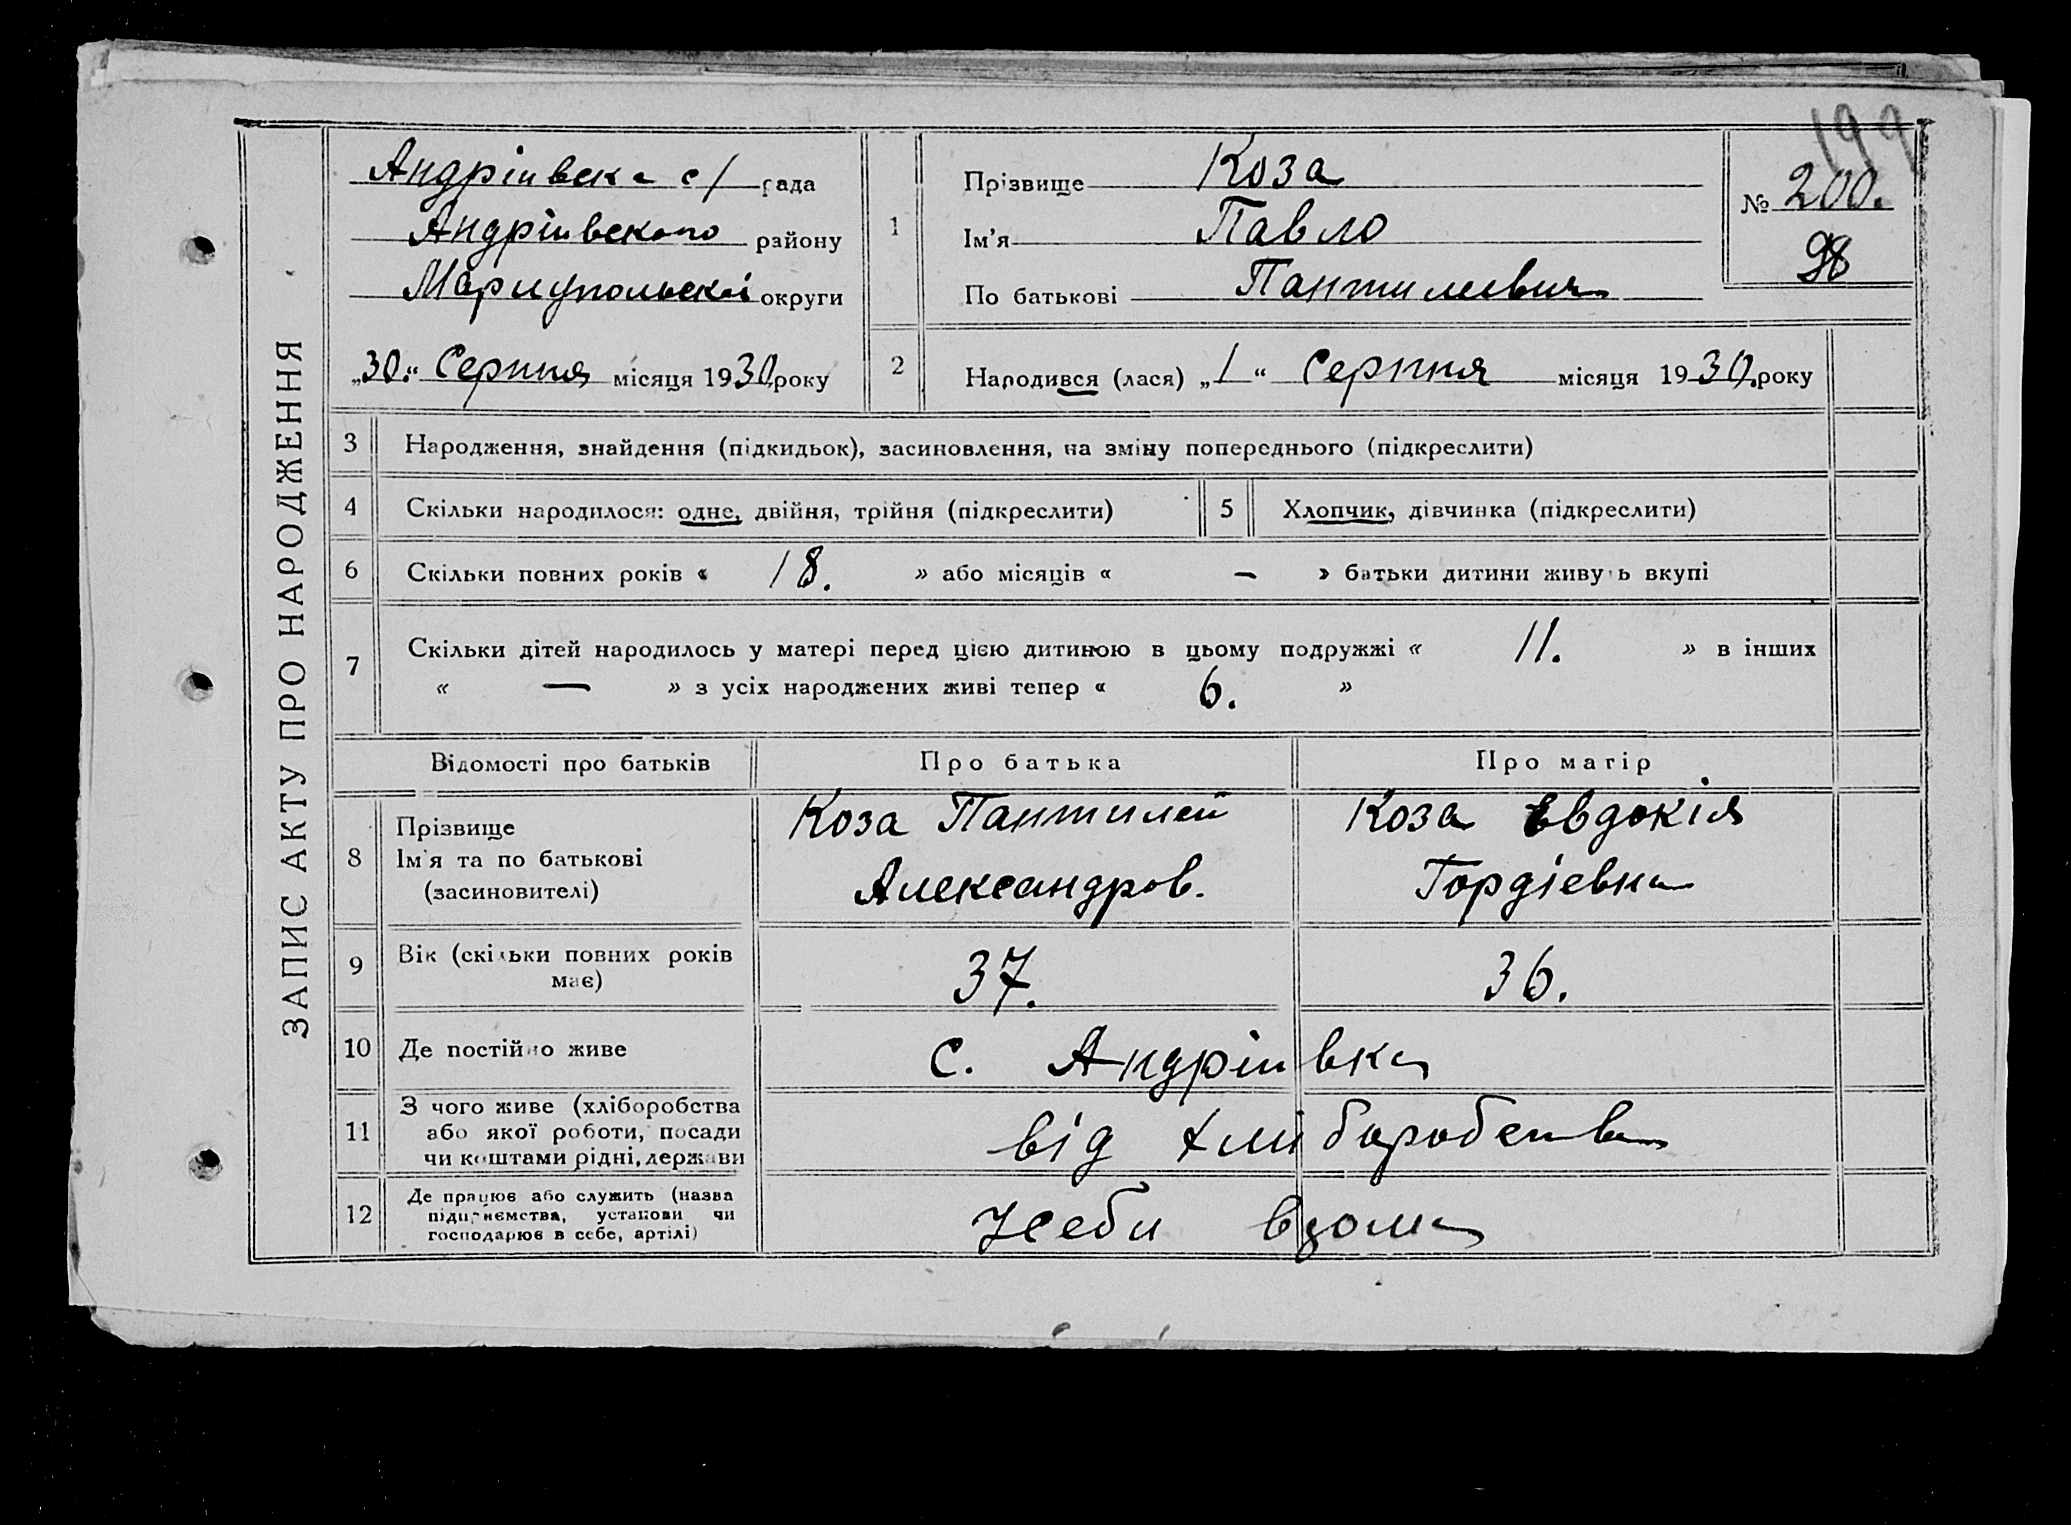 199
ЗАПИС АКТУ ПРО НАРОДЖЕННЯ
Андріивска с/ рада
Андріивского району
Мариупольскoі округи
„30.“ Серпня місяця 1930 року
1
Прізвище Коза
Ім'я Павло
По батькові Пантилиевич
№ 200.
98
2
Народився (лася) „1“ Серпня місяця 1930. року
3 Народження, знайдення (підкидьок), засиновлення, на зміну попереднього (підкреслити)
4 Скільки народилося: одне, двійня, трійня (підкреслити) 5 Хлопчик, дівчинка (підкреслити)
6 Скільки повних років « 18. » або місяців « — » батьки дитини живуть вкупі
7 Скільки дітей народилось у матері перед цією дитиною в цьому подружжі « 11. » в інших
« — » з усіх народжених живі тепер « 6. »
Відомості про батьків Про батька Про матір
8 Прізвище
Ім'я та по батькові
(засиновителі)
Коза Пантилей
Александров.
Коза Евдокія
Гордіевна
9 Вік (скільки повних років
має)
37. 36.
10 Де постійно живе с. Андріивка
11 З чого живе (хліборобства
або якої роботи, посади
чи коштами рідні, держави
від хлиборобства
12 Де працює або служить (назва
підприємства, установи чи
господарює в себе, артілі)
Усеби вдома